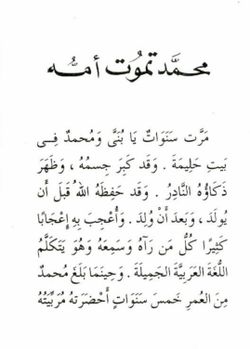 محمَّد تموُت أمُّه
مَرَّت سَنَوَاتٌ يَا بُنَىَّ وَمُحمدٌ فِــى
بَيتِ حَلِيمَةَ . وَقد كَبِرَ جِسمُهُ ، وَظَهَرَ
ذَكَاؤُهُ النَّادِرُ . وَقد حَفِظَهُ اللهُ قَبلَ أَن
يُولَدَ ، وَبَعدَ أَنْ وُلِدَ . وَأُعْجِبَ بِهِ إعْجَابًا
كَثِيرًا كُلُّ مَن رَآهُ وَسَمِعَهُ وَهُوَ يَتَكَلَّمُ
اللُّغَةَ العَرَبِيَّةَ الجَمِيلَةَ . وَحِينَمَا بَلَغَ مُحمدٌ
مِنَ العُمرِ خَمسَ سَنَوَاتٍ أَحْضَرَتهُ مُرَبِّيَتُهُ